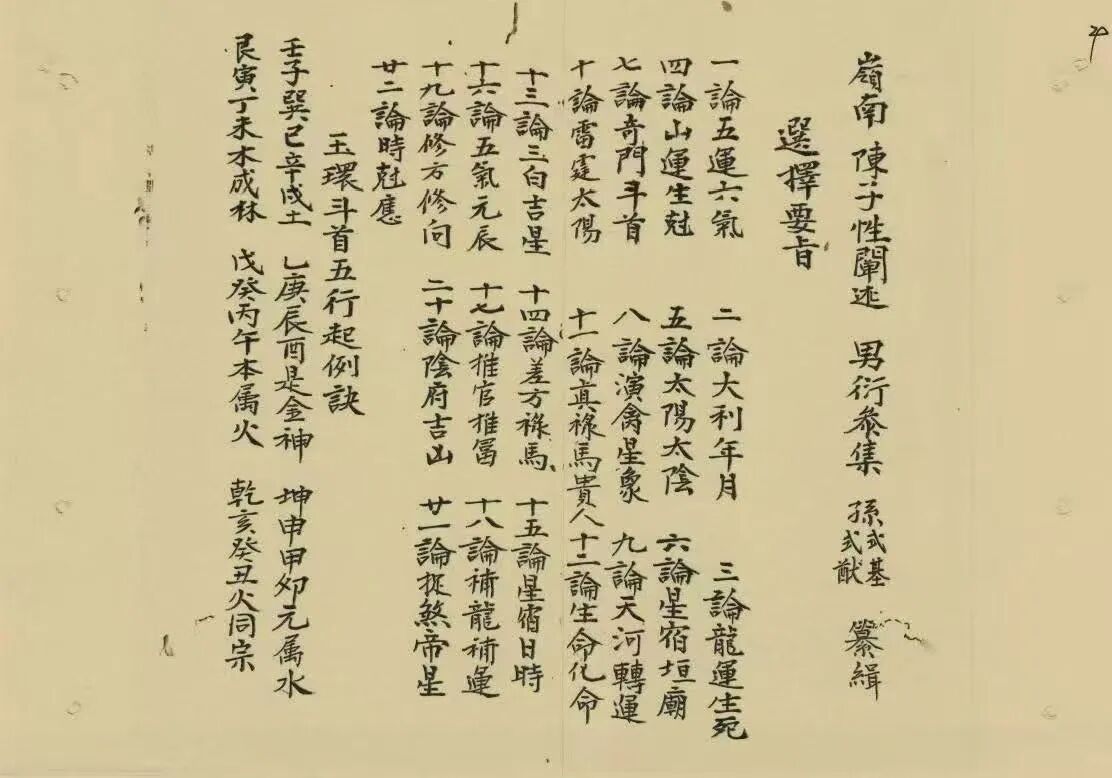 嶺南 陳子性闡述 男衍參集 孫式基式猷 纂緝
選擇要旨
一論五運六氣 二論大利年月 三論龍運生死
四論山運生尅 五論太陽太陰 六論星宿垣廟
七論奇門斗首 八論演禽星象 九論天河轉運
十論雷霆太陽 十一論真祿馬貴人 十二論生命化命
十三論三白吉星 十四論差方祿馬 十五論星宿日時
十六論五氣元辰 十七論推官推富 十八論補龍補運
十九論修方修向 二十論陰府吉山 廿一論捉煞帝星
廿二論時尅應
玉環斗首五行起例訣
壬子巽巳辛戌土 乙庚辰酉是金神 坤申甲夘元属水
艮寅丁未木成林 戊癸丙午本属火 乾亥癸丑火同宗